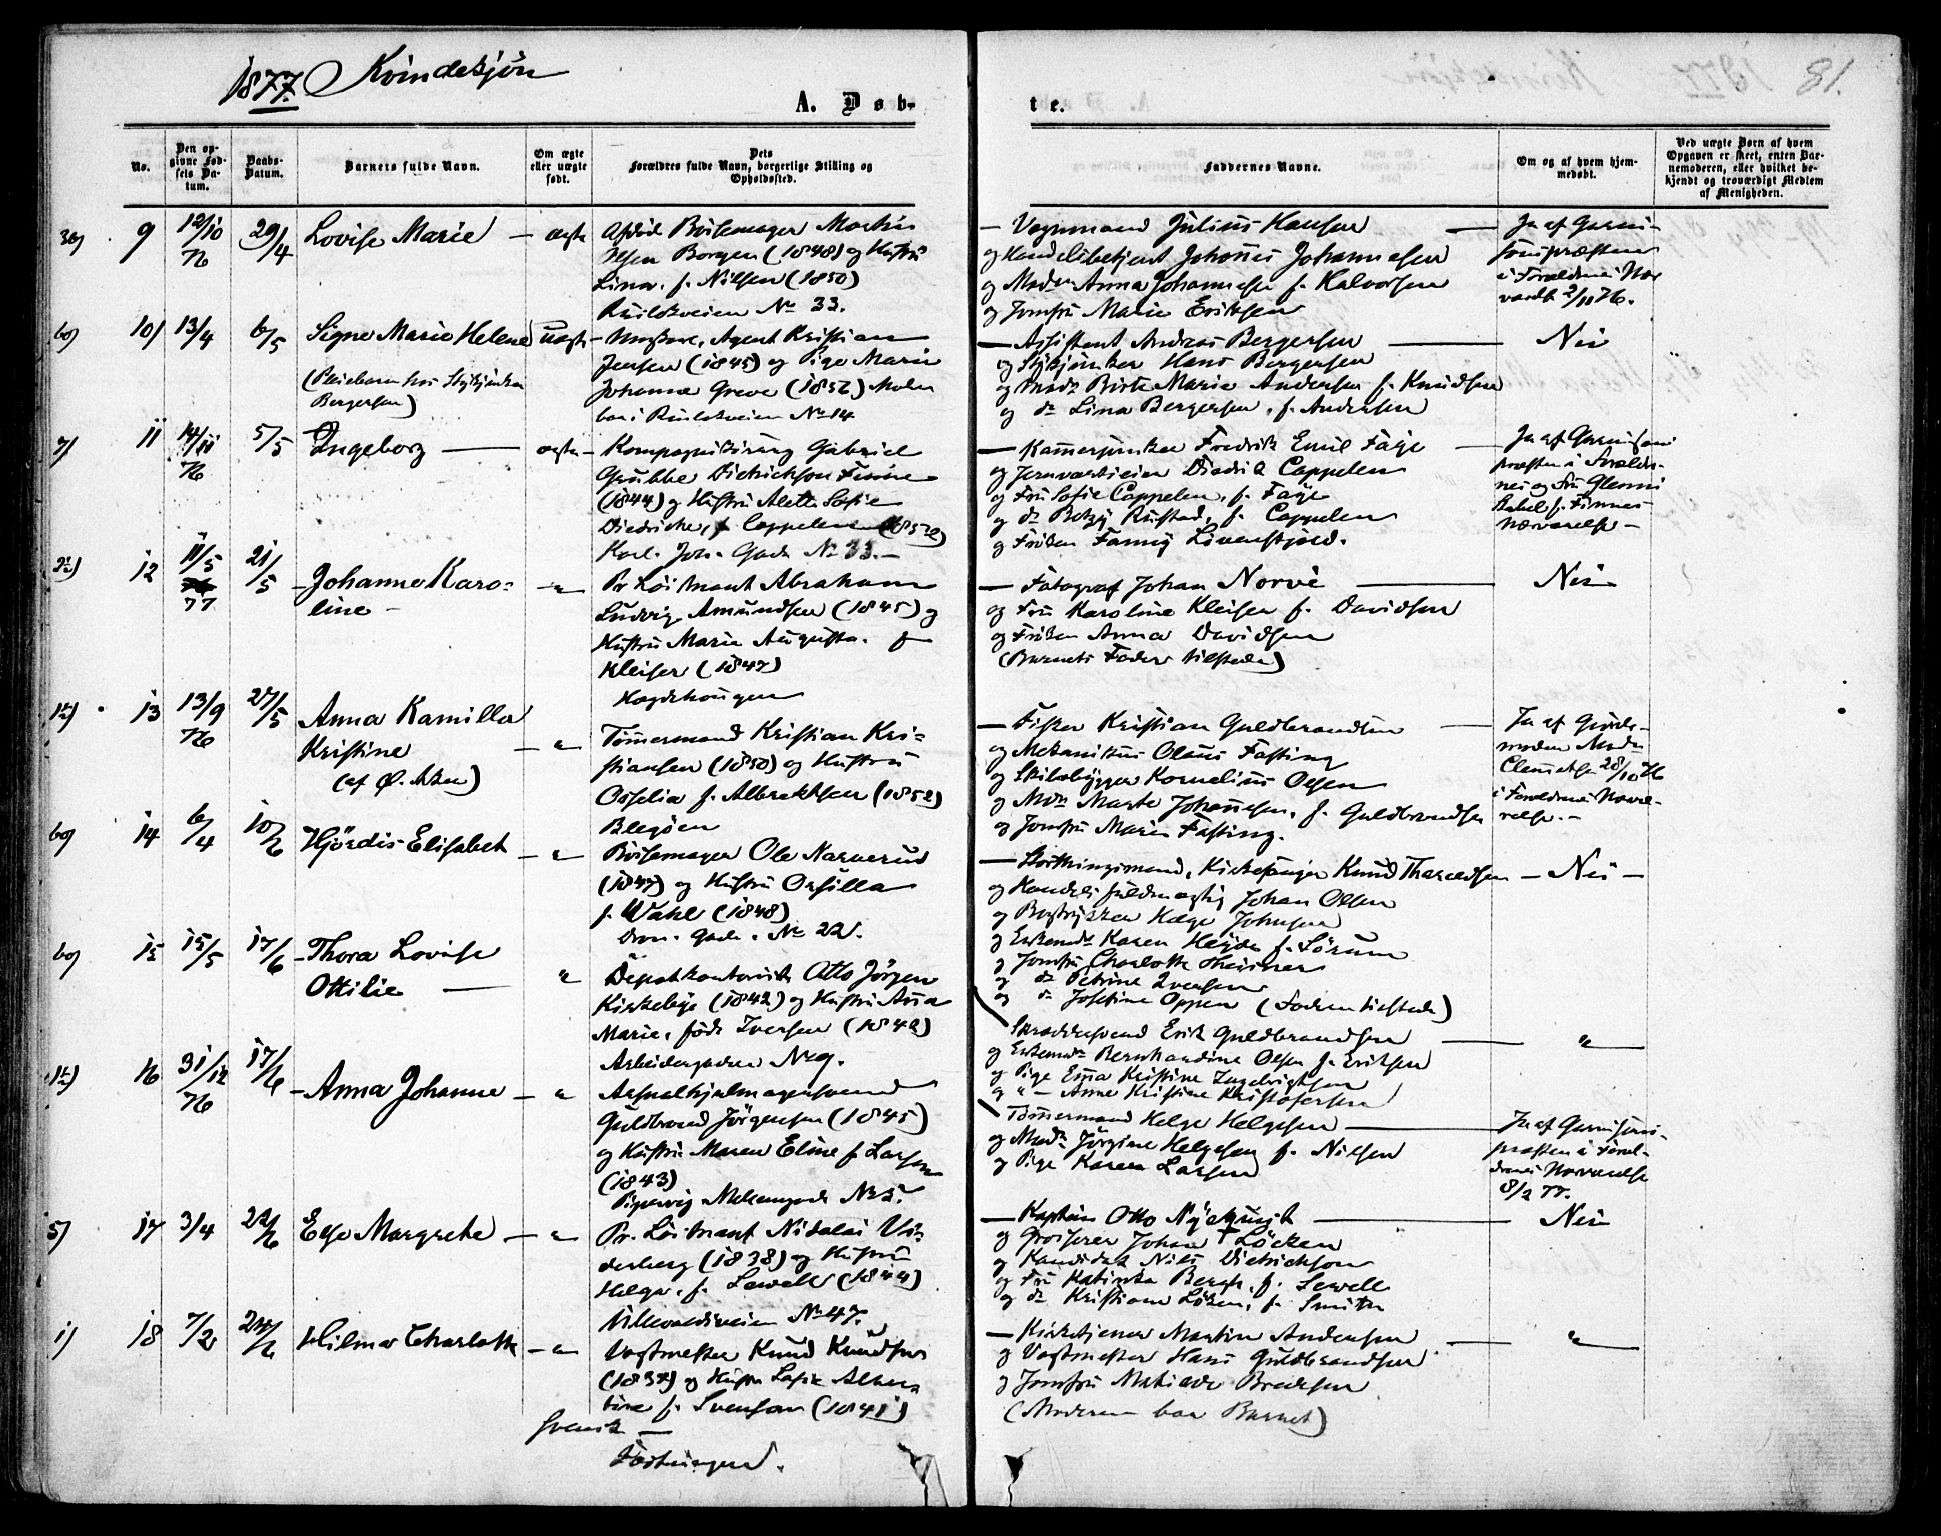 1877. Kvindekjøn
81.
A. Døb-
te.
No.
Den op-
givne Fød-
sels Da-
tum.
Daabs-
Datum.
Barnets fulde Navn.
Om ægte
eller uægte
født.
Dets
Forældres fulde Navn, borgerlige Stilling og
Opholdssted.
Faddernes Navne.
Om og af hvem hjem-
medøbt.
Ved uægte Børn af hvem
Opgaven er skeet, enten Bar-
nemoderen, eller hvilket be-
kjendt og troværdigt Medlem
af Menigheden.
9 12/10 76 29/4 Lovise Marie — ægte
Afskd Børsemager Martin
Olsen Borgen (1848) og Hustru
Lina. f. Nilsen (1850)
No 33.
— Vognmand Julius Hansen
og Handelsbetjent Johannes Johannesen
og Mad. Anna Johannesen f. Halvorsen
og Jomfru Marie Eriksen
Ja af Garni-
sonspræsten
i Forældrenes Nær
værelse 2/11 76.
10 13/4 6/5 Signe Marie Helene uægte
(Pleiebarn hos
Bergersen)
Ungkare, Agent Kristian
Jensen (1845) og Pige Marie
Johanna Greve (1852)
bor i No 14
— Assistent Andreas Bergersen
og Hans Bergersen
og Mad. Birte Marie Andersen f. Knudsen
og do Lina Bergersen, f. Andersen
Nei
7) 11 14/11 76 5/5 Ingeborg — ægte
Kompagnikirurg Gabriel
Grubbe Dietrickson Finne
(1844) og Hustru Alette Sofie
Diedricke, f. Cappelen (1852)
Karl. Joh. Gade No 33.
— Kammerjunker Fredrik Emil Faye
og Jernværkseier Diedrik Cappelen
og Fru Sofie Cappelen, f. Faye
og do Betzy Rustad, f. Cappelen
og Frøken Fanny Løvenskjold.
Ja af Garnisons
præsten i Foræld-
nes og Fru
f. Finnes
Nærværelse —
12 11/5 77 21/5 Johanne Karo-
line —
Pr Løitnant Abraham
Ludvig Amundsen (1845) og
Hustru Marie Augusta. f
Kleiser (1847)
Hægdehougen
— Fotograf Johan Norvie
og Fru Karoline Kleisen f. Davidsen
og Frøken Anna Davidsen
(Barnets Fader tilstede)
Nei
13 13/9 76 27/5 Anna Kamilla
Kristine
(af Ø. Aker)
Tømmermand Kristian Kri-
stiansen (1850) og Hustru
Ossilia f. Albrektsen (1852)
Blegøen
— Fisker Kristian Guldbrandsen
og Mekanikus Olaus Fasting
og Skibsbygger Kornelius Olsen
og Md. Marte Johannesen, f. Guldbrandsen
og Jomfru Marie Fasting.
Ja af Gjorde-
moder Mad.
Clemetsen 28/10 76
i Forældrenes Nærvæ-
relse. —
14 6/4 10/6 Hjördis Elisabet
Börsemager Ole Narverud
(1847) og Hustru Orsilla
f. Wahl (1848)
Dron. Gade. No 22.
— Storthingsmand, Kirkesanger Knud Tharaldsen — Nei —
og Handelsfuldmægtig Johan Olsen
og Bogtrykker Helge Johnsen
og Enkemd. Karen Heyde f. Sörum
og Jomfru Charlotte
og do Petrine Iversen
og do Josefine Oppen (Faderen tilstede)
15 15/5 17/6 Thora Lovise
Ottilie —
Depotkontorist Otto Jörgen
Kirkebye (1842) og Hustru Anna
Marie, født Iversen (1842)
Arbeidergaden No 9.
Skræddersvend Erik Guldbrandsen
og Enkemd. Bernhardine Olsen f. Eriksen
og Pige Emma Kristine Ingebrigtsen
og " — Anne Kristine Kristofersen
16 31/12 76 17/6 Anna Johanne —
Arsenalhjulmagersvend
Guldbrand Jörgensen (1845)
og Hustru Maren Eline f. Larsen
(1843)
Pipervig No 5.
Tømmermand Helge Helgesen
og Mad. Jörgine Helgesen f. Nilsen
og Pige Karen Larsen
Ja af Garnisons-
præsten i Foræl-
drenes Nærværelse
8/2 77.
5) 17 3/4 22/6 Else Margrete —
Pr. Løitnant Nikolai Vi-
derberg (1838) og Hustru
Helga. f. Sewell (1844)
Ullevoldsveien No 47.
— Kaptein Otto Nyequist
og Grosserer Johan Løcken
og Kandidat Nils Dietrickson
og Fru Katinka Bergh, f. Sewell
og do Kristiane Løken, f. Smith
Nei
1) 18 7/2 24/6 Hilma Charlotte
Vagtmester Knud Knudsen
(1837) og Hustru Sofie Alber-
tine f. Svensen (1841)
Svensk —
Fæstningen.
— Kirketjener Martin Andersen
og Vagtmester Hans Guldbrandsen
og Jomfru Matilde Bredesen
(Moderen bar Barnet)